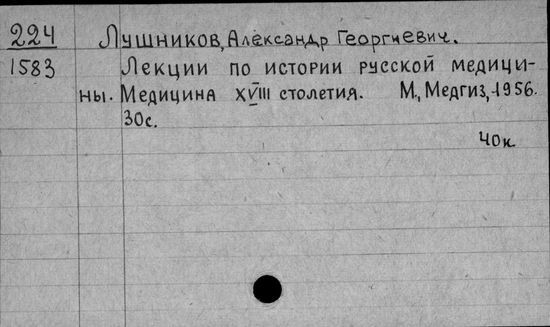 224 Лушников, Александр Георгиевич.
1583 Лекции по истории русской медици-
ны. Медицина XVIII столетия. М., Медгиз, 1956.
30с.
40к